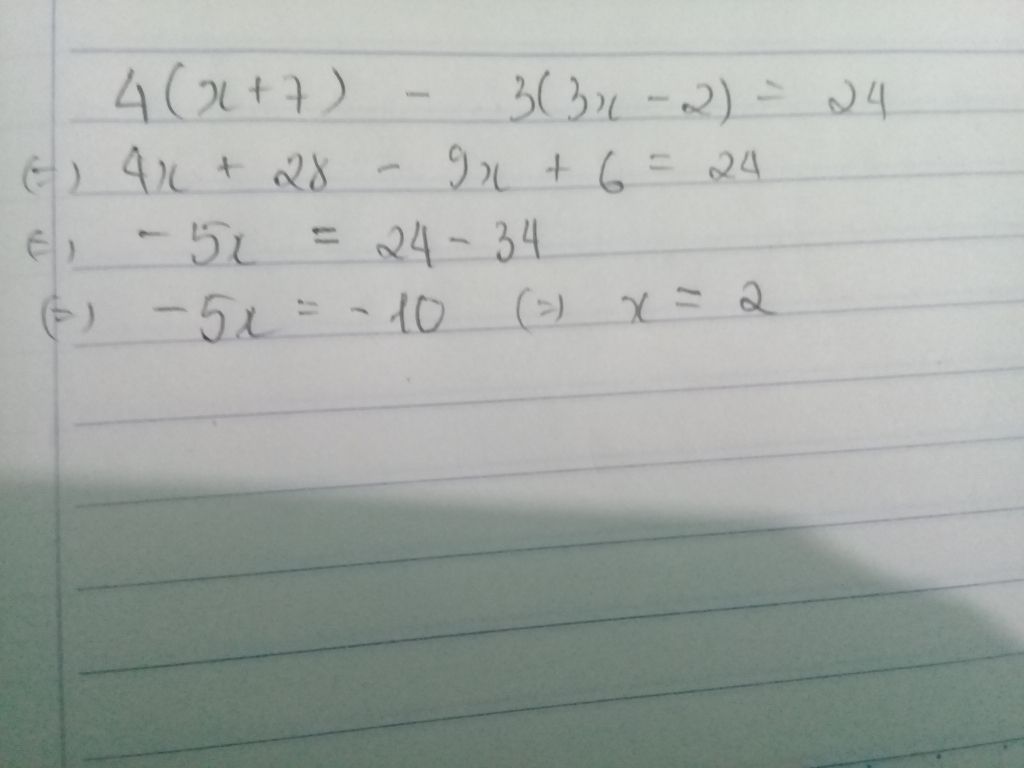 4(x+7) - 3(3x-2) = 24
(=) 4x + 28 - 9x + 6 = 24
(=) -5x = 24 - 34
(=) -5x = -10 (=) x = 2